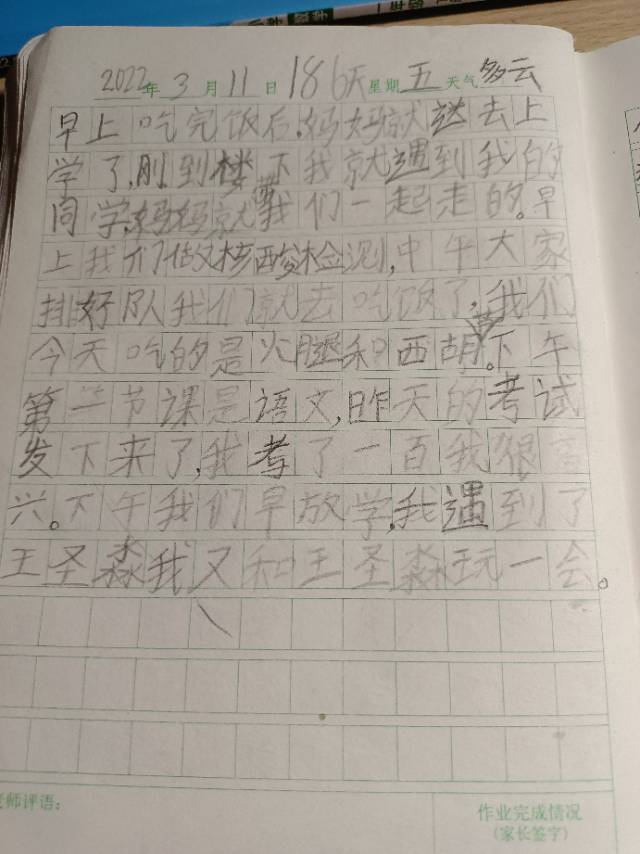 2022年3月11日 186天星期五天气多云
早上吃完饭后,妈妈就送去上
学了,刚到楼下我就遇到我的
同学,妈妈就带我们一起走的。早
上我们做核酸检测,中午大家
排好队我们就去吃饭了,我们
今天吃的是火腿和西葫芦。下午
第二节课是语文,昨天的考试
发下来了,我考了一百我很高
兴。下午我们早放学,我遇到了
王圣淼我又和王圣淼玩一会。
老师评语:
作业完成情况
(家长签字)